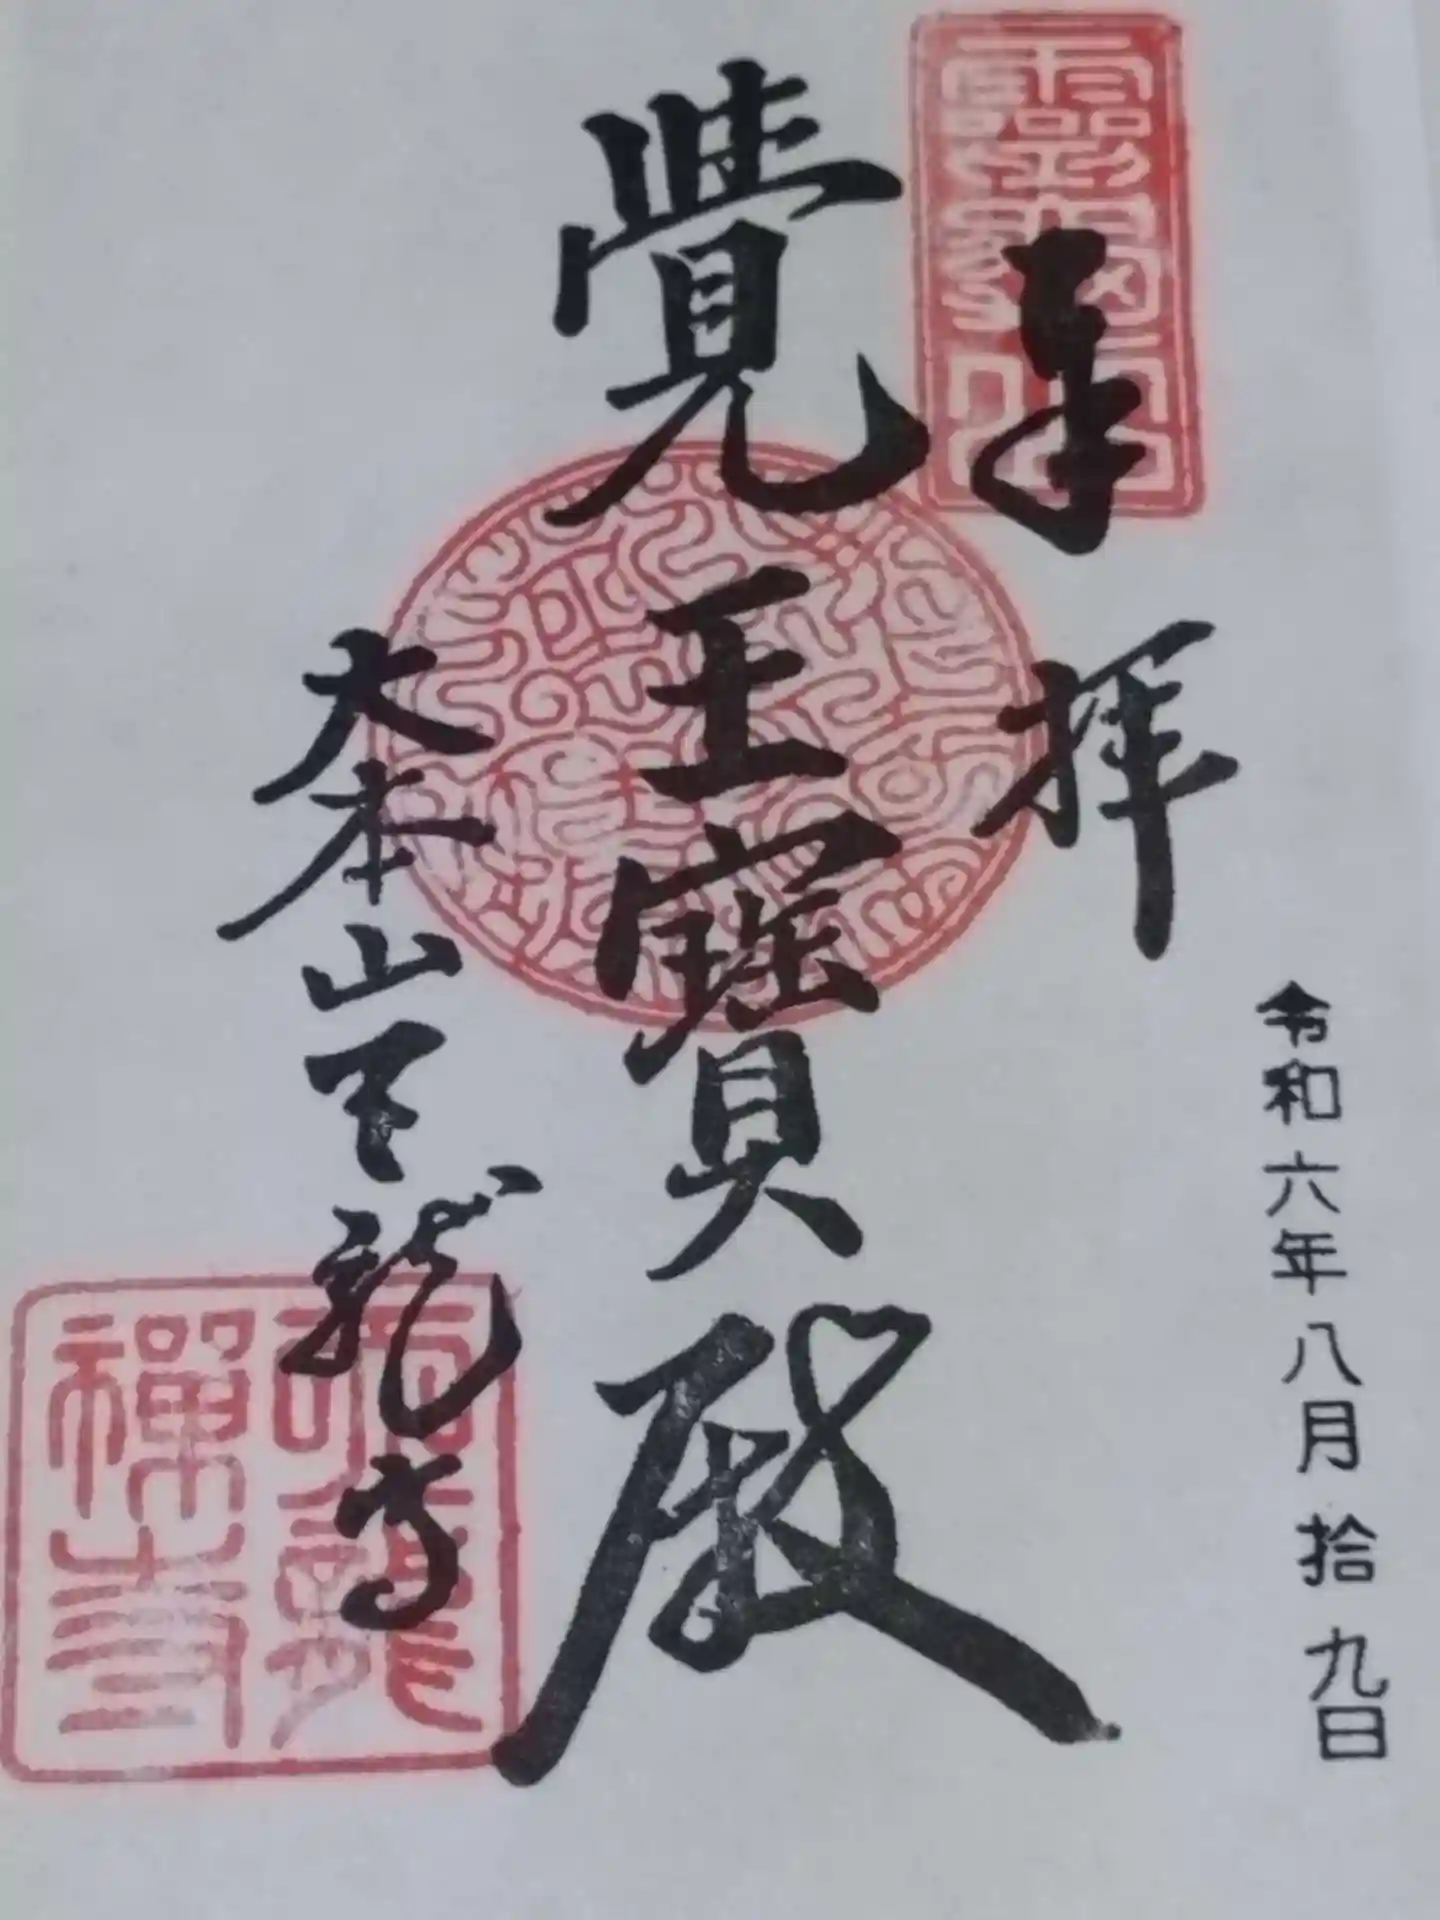 奉拝
令和六年八月拾九日
覺王寶殿
大本山天龍寺
靈龜山
天龍
禪寺